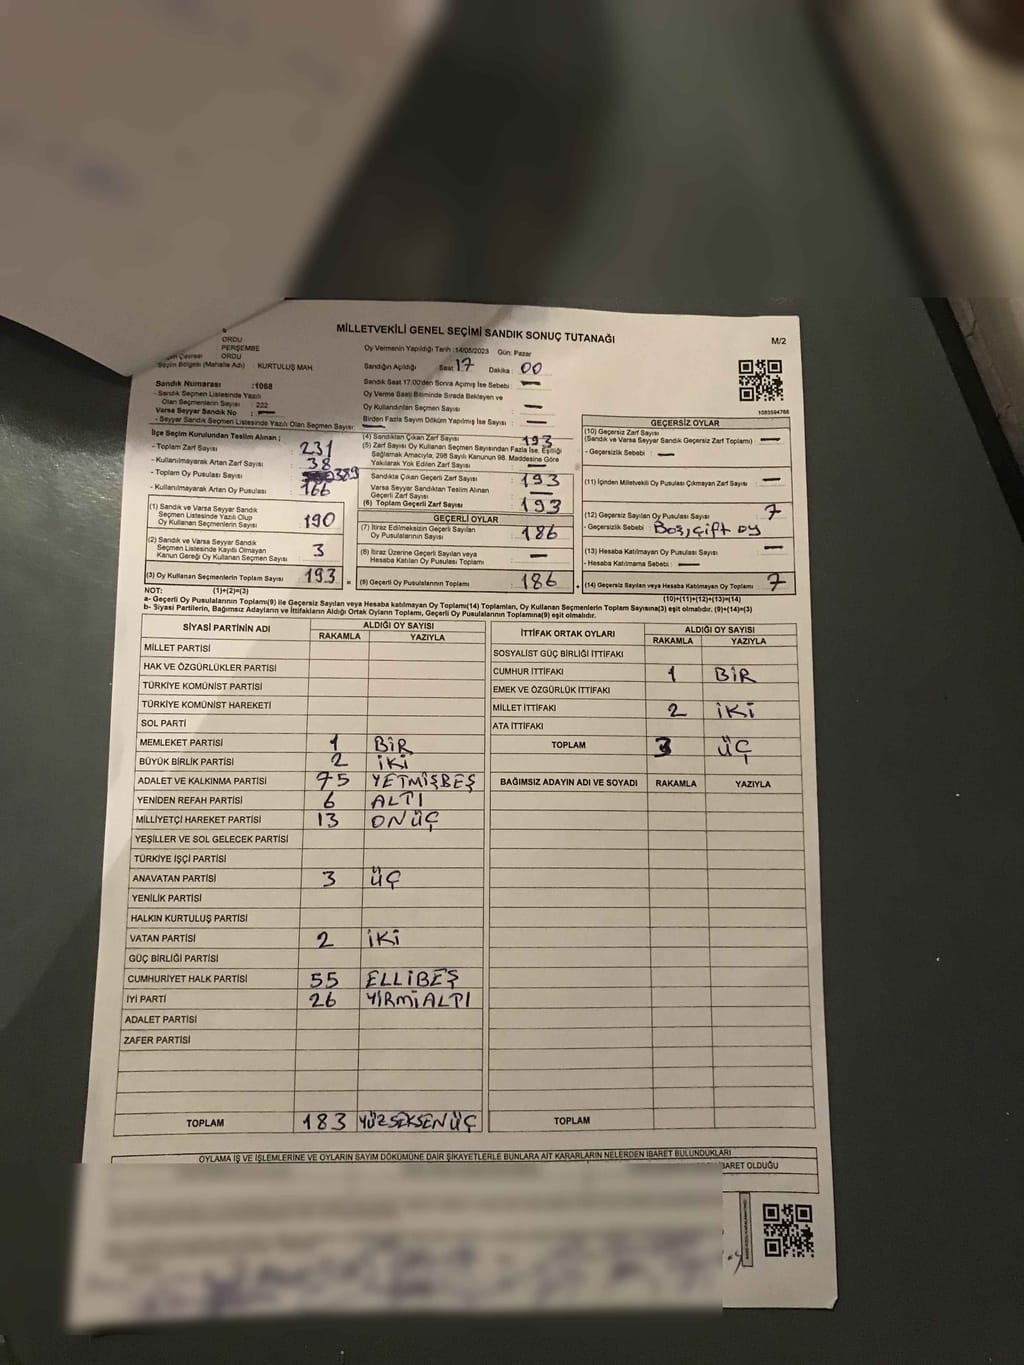 MİLLETVEKİLİ GENEL SEÇİMİ SANDIK SONUÇ TUTANAĞI
M/2
ORDU
PERŞEMBE
Çevresi ORDU
Seçim Bölgesi (Mahalle Adı) : KURTULUŞ MAH.
Sandık Numarası :1068
- Sandık Seçmen Listesinde Yazılı
Olan Seçmenlerin Sayısı : 222
Varsa Seyyar Sandık No : —
- Seyyar Sandık Seçmen Listesinde Yazılı Olan Seçmen Sayısı : —
Oy Vermenin Yapıldığı Tarih :14/05/2023 Gün: Pazar
Sandığın Açıldığı Saat : 17 Dakika : 00
Sandık Saat 17:00'den Sonra Açılmış İse Sebebi : —
Oy Verme Saati Bitiminde Sırada Bekleyen ve
Oy Kullandırılan Seçmen Sayısı : —
Birden Fazla Sayım Döküm Yapılmış İse Sayısı : —
1083594768
İlçe Seçim Kurulundan Teslim Alınan ;
- Toplam Zarf Sayısı : 231
- Kullanılmayarak Artan Zarf Sayısı : 38
- Toplam Oy Pusulası Sayısı : 389
- Kullanılmayarak Artan Oy Pusulası : 166
(1) Sandık ve Varsa Seyyar Sandık
Seçmen Listesinde Yazılı Olup
Oy Kullanan Seçmenlerin Sayısı : 190
(2) Sandık ve Varsa Seyyar Sandık
Seçmen Listesinde Kayıtlı Olmayan
Kanun Gereği Oy Kullanan Seçmen Sayısı : 3
(3) Oy Kullanan Seçmenlerin Toplam Sayısı : 193 =
(4) Sandıktan Çıkan Zarf Sayısı : 193
(5) Zarf Sayısı Oy Kullanan Seçmen Sayısından Fazla İse, Eşitliği
Sağlamak Amacıyla, 298 Sayılı Kanunun 98. Maddesine Göre
Yakılarak Yok Edilen Zarf Sayısı : —
Sandıkta Çıkan Geçerli Zarf Sayısı : 193
Varsa Seyyar Sandıktan Teslim Alınan
Geçerli Zarf Sayısı : —
(6) Toplam Geçerli Zarf Sayısı : 193
GEÇERLİ OYLAR
(7) İtiraz Edilmeksizin Geçerli Sayılan
Oy Pusulalarının Sayısı : 186
(8) İtiraz Üzerine Geçerli Sayılan veya
Hesaba Katılan Oy Pusulası Toplamı : —
(9) Geçerli Oy Pusulalarının Toplamı : 186 +
GEÇERSİZ OYLAR
(10) Geçersiz Zarf Sayısı
(Sandık ve Varsa Seyyar Sandık Geçersiz Zarf Toplamı) : —
- Geçersizlik Sebebi : —
(11) İçinden Milletvekili Oy Pusulası Çıkmayan Zarf Sayısı : —
(12) Geçersiz Sayılan Oy Pusulası Sayısı : 7
- Geçersizlik Sebebi : Boş, çift oy
(13) Hesaba Katılmayan Oy Pusulası Sayısı : —
- Hesaba Katılmama Sebebi : —
(14) Geçersiz Sayılan veya Hesaba Katılmayan Oy Toplamı : 7
NOT: (1)+(2)=(3) (10)+(11)+(12)+(13)=(14)
a- Geçerli Oy Pusulalarının Toplamı(9) ile Geçersiz Sayılan veya Hesaba katılmayan Oy Toplamı(14) Toplamları, Oy Kullanan Seçmenlerin Toplam Sayısına(3) eşit olmalıdır. (9)+(14)=(3)
b- Siyasi Partilerin, Bağımsız Adayların ve İttifakların Aldığı Ortak Oyların Toplamı, Geçerli Oy Pusulalarının Toplamına(9) eşit olmalıdır.
SİYASİ PARTİNİN ADI ALDIĞI OY SAYISI
RAKAMLA YAZIYLA
MİLLET PARTİSİ
HAK VE ÖZGÜRLÜKLER PARTİSİ
TÜRKİYE KOMÜNİST PARTİSİ
TÜRKİYE KOMÜNİST HAREKETİ
SOL PARTİ
MEMLEKET PARTİSİ 1 BİR
BÜYÜK BİRLİK PARTİSİ 2 İKİ
ADALET VE KALKINMA PARTİSİ 75 YETMİŞBEŞ
YENİDEN REFAH PARTİSİ 6 ALTI
MİLLİYETÇİ HAREKET PARTİSİ 13 ONÜÇ
YEŞİLLER VE SOL GELECEK PARTİSİ
TÜRKİYE İŞÇİ PARTİSİ
ANAVATAN PARTİSİ 3 ÜÇ
YENİLİK PARTİSİ
HALKIN KURTULUŞ PARTİSİ
VATAN PARTİSİ 2 İKİ
GÜÇ BİRLİĞİ PARTİSİ
CUMHURİYET HALK PARTİSİ 55 ELLİBEŞ
İYİ PARTİ 26 YİRMİALTI
ADALET PARTİSİ
ZAFER PARTİSİ
TOPLAM 183 YÜZSEKSENÜÇ
İTTİFAK ORTAK OYLARI ALDIĞI OY SAYISI
RAKAMLA YAZIYLA
SOSYALİST GÜÇ BİRLİĞİ İTTİFAKI
CUMHUR İTTİFAKI 1 BİR
EMEK VE ÖZGÜRLÜK İTTİFAKI
MİLLET İTTİFAKI 2 İKİ
ATA İTTİFAKI
TOPLAM 3 ÜÇ
BAĞIMSIZ ADAYIN ADI VE SOYADI RAKAMLA YAZIYLA
TOPLAM
OYLAMA İŞ VE İŞLEMLERİNE VE OYLARIN SAYIM DÖKÜMÜNE DAİR ŞİKAYETLERLE BUNLARA AİT KARARLARIN NELERDEN İBARET BULUNDUKLARI
İBARET OLDUĞU